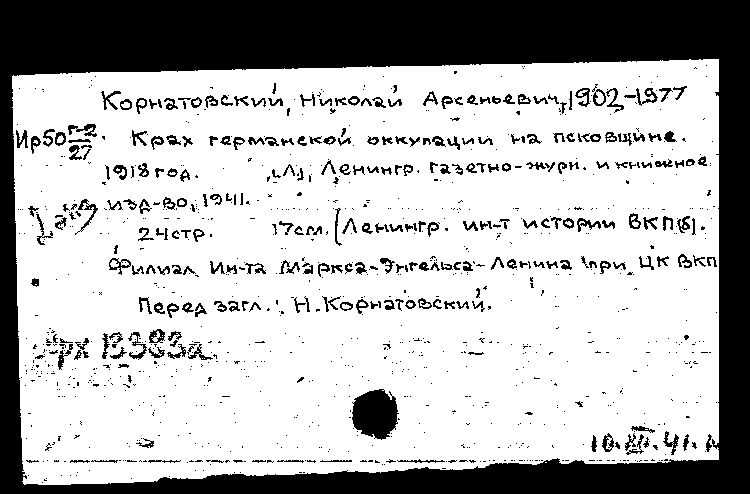 Корнатовский, Николай Арсеньевич, 1902-1977
Ир50 г-2/27 Крах германской оккупации на псковщине.
1918 год. [Л], Ленингр. газетно-журн. и книжное
изд-во, 1941.
24стр. 17см. (Ленингр. ин-т истории ВКП(б).
Филиал Ин-та Маркса-Энгельса-Ленина при ЦК ВКП
Перед загл.: Н. Корнатовский.
Арх В383а
10.XII.41.